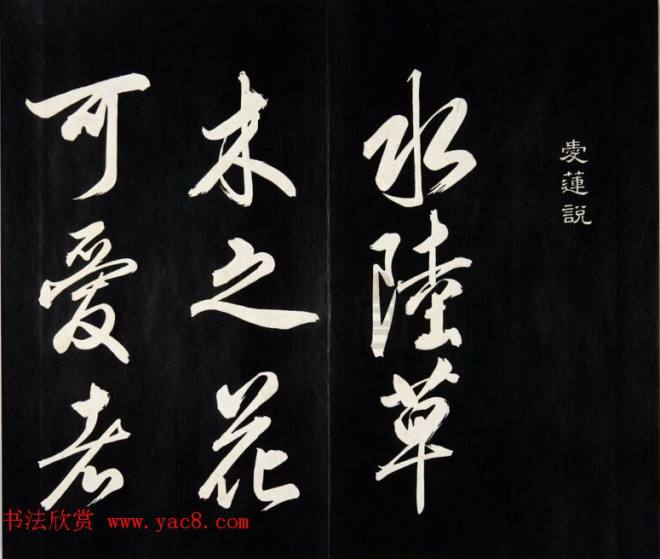 爱蓮説
水陸草
木之花
可爱者
书法欣赏 www.yac8.com